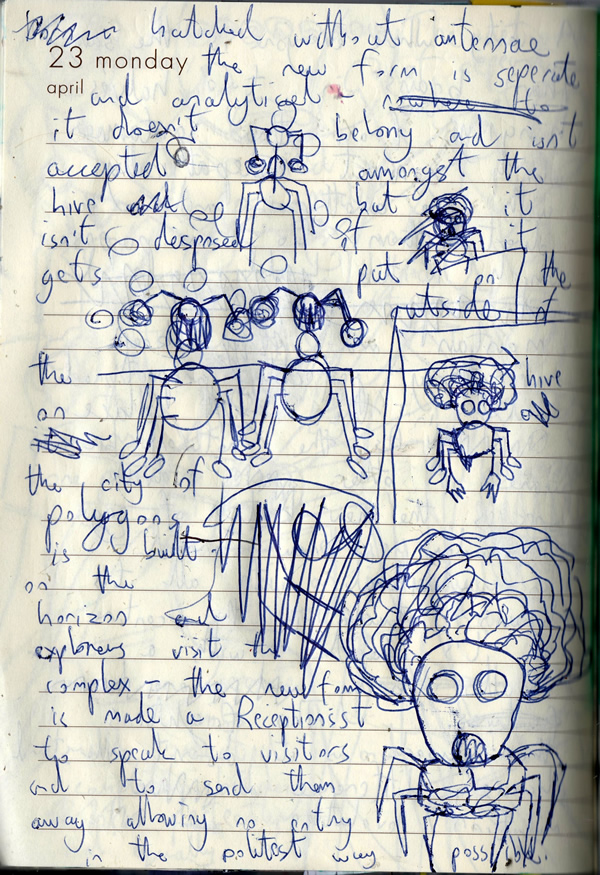 hatched without antennae
23 monday
the new form is seperate
april
and analytised - nowhere the
it doesn't belong and isn't
accepted amongst the
hive but it
isn't desposed of it
gets put on the
outside of
the hive
on
the city of
polygons
is built
on the
horizon and
explorers visit the
complex - the new form
is made a Receptionsist
to speak to visitors
and to send them
away allowing no entry
in the politest way possible.